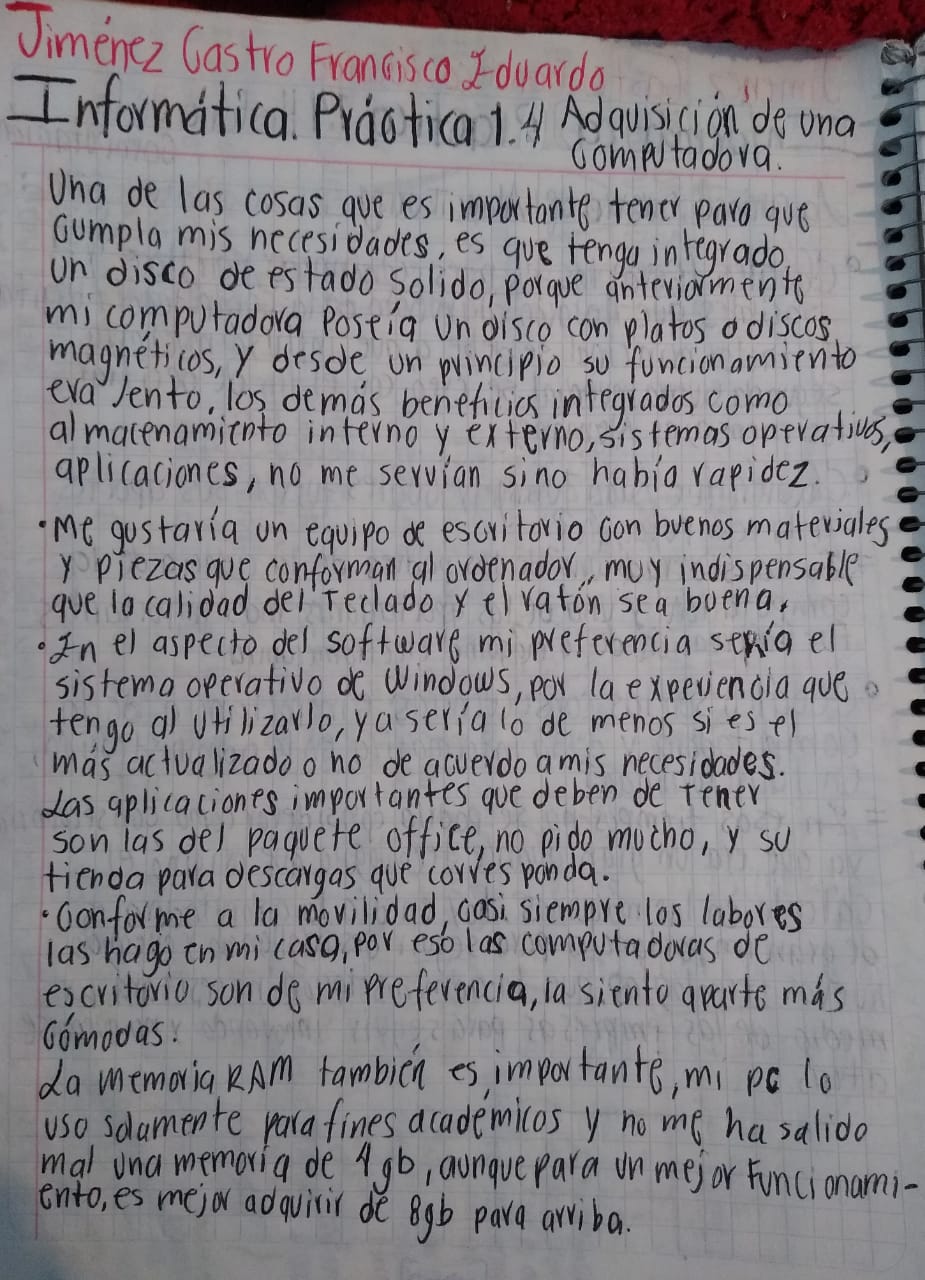 Jiménez Castro Francisco Eduardo
Informática. Práctica 1.4 Adquisición de una
computadora.
Una de las cosas que es importante tener para que
cumpla mis necesidades, es que tenga integrado
un disco de estado solido, porque anteriormente
mi computadora poseía un disco con platos o discos
magnéticos, y desde un principio su funcionamiento
era lento, los demás beneficios integrados como
almacenamiento interno y externo, sistemas operativos,
aplicaciones, no me servían sino había rapidez.
•Me gustaría un equipo de escritorio con buenos materiales
y piezas que conforman al ordenador, muy indispensable
que la calidad del teclado y el ratón sea buena.
•En el aspecto del software mi preferencia sería el
sistema operativo de Windows, por la experiencia que
tengo al utilizarlo, ya sería lo de menos si es el
más actualizado o no de acuerdo a mis necesidades.
Las aplicaciones importantes que deben de tener
son las del paquete office, no pido mucho, y su
tienda para descargas que corresponda.
•Conforme a la movilidad, casi siempre los labores
las hago en mi casa, por eso las computadoras de
escritorio son de mi preferencia, la siento aparte más
cómodas.
La memoria RAM también es importante, mi pc lo
uso solamente para fines académicos y no me ha salido
mal una memoria de 4 gb, aunque para un mejor funcionami-
ento, es mejor adquirir de 8gb para arriba.